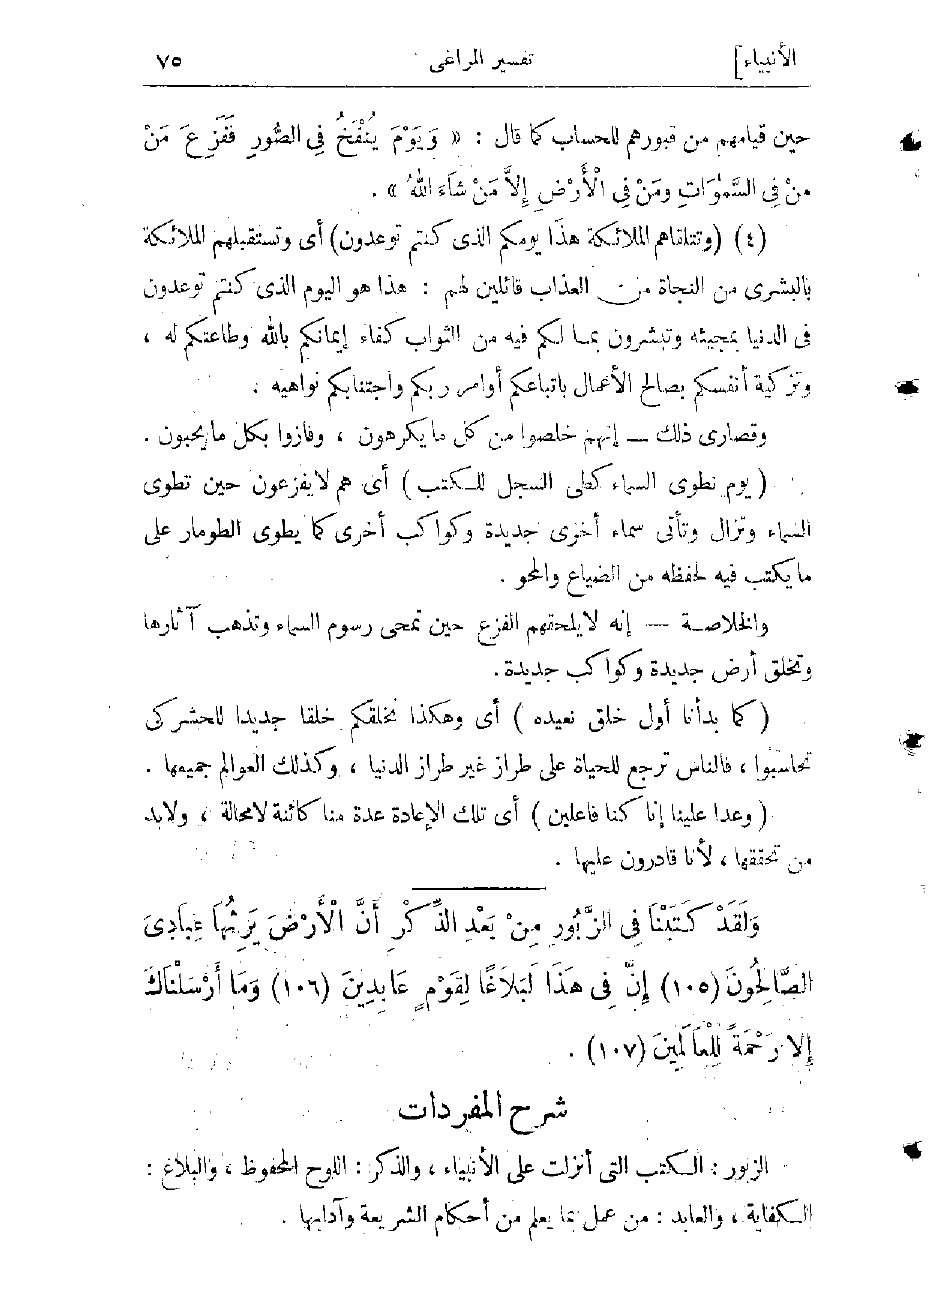 الأنبياء]
تفسير المراغى
٧٥
حين قيامهم من قبورهم للحساب كما قال : « وَيَوْمَ يُنْفَخُ فِى الصُّورِ فَفَزِعَ مَنْ
مَنْ فِى السَّمٰوَاتِ وَمَنْ فِى الْأَرْضِ إِلاَّ مَنْ شَاءَ اللهُ » .
(٤) (وتتلقاهم الملائكة هذا يومكم الذى كنتم توعدون) أى وتستقبلهم الملائكة
بالبشرى من النجاة من العذاب قائلين لهم : هذا هو اليوم الذى كنتم توعدون
فى الدنيا بمجيئه وتبشرون بما لكم فيه من الثواب كفاء إيمانكم بالله وطاعتكم له ،
وتزكية أنفسكم بصالح الأعمال باتباعكم أوامر ربكم واجتنابكم نواهيه .
وقصارى ذلك — إنهم خلصوا من كل ما يكرهون ، وفازوا بكل ما يحبون .
( يوم نطوى السماء كطى السجل للكتب ) أى هم لا يفزعون حين تطوى
السماء وتزال وتأتى سماء أخرى جديدة وكواكب أخرى كما يطوى الطومار على
ما يكتب فيه لحفظه من الضياع والمحو .
والخلاصة — إنه لا يلحقهم الفزع حين تمحى رسوم السماء وتذهب آثارها
وتخلق أرض جديدة وكواكب جديدة .
( كما بدأنا أول خلق نعيده ) أى وهكذا نخلقكم خلقا جديدا للحشر كى
تحاسبوا ، فالناس ترجع للحياة على طراز غير طراز الدنيا ، وكذلك العوالم جميعها .
( وعدا علينا إنا كنا فاعلين ) أى تلك الإعادة عدة منا كائنة لامحالة ، ولابد
من تحققها ، لأنا قادرون عليها .
وَلَقَدْ كَتَبْنَا فِى الزَّبُورِ مِنْ بَعْدِ الذِّكْرِ أَنَّ الْأَرْضَ يَرِثُهَا عِبَادِىَ
الصَّالِحُونَ (١٠٥) إِنَّ فِى هَذَا لَبَلاَغًا لِقَوْمٍ عَابِدِينَ (١٠٦) وَمَا أَرْسَلْنَاكَ
إِلا رَحْمَةً لِلْعَالَمِينَ (١٠٧) .
شرح المفردات
الزبور : الكتب التى أنزلت على الأنبياء ، والذكر : اللوح المحفوظ ، والبلاغ :
الكفاية ، والعابد : من عمل بما يعلم من أحكام الشريعة وآدابها .